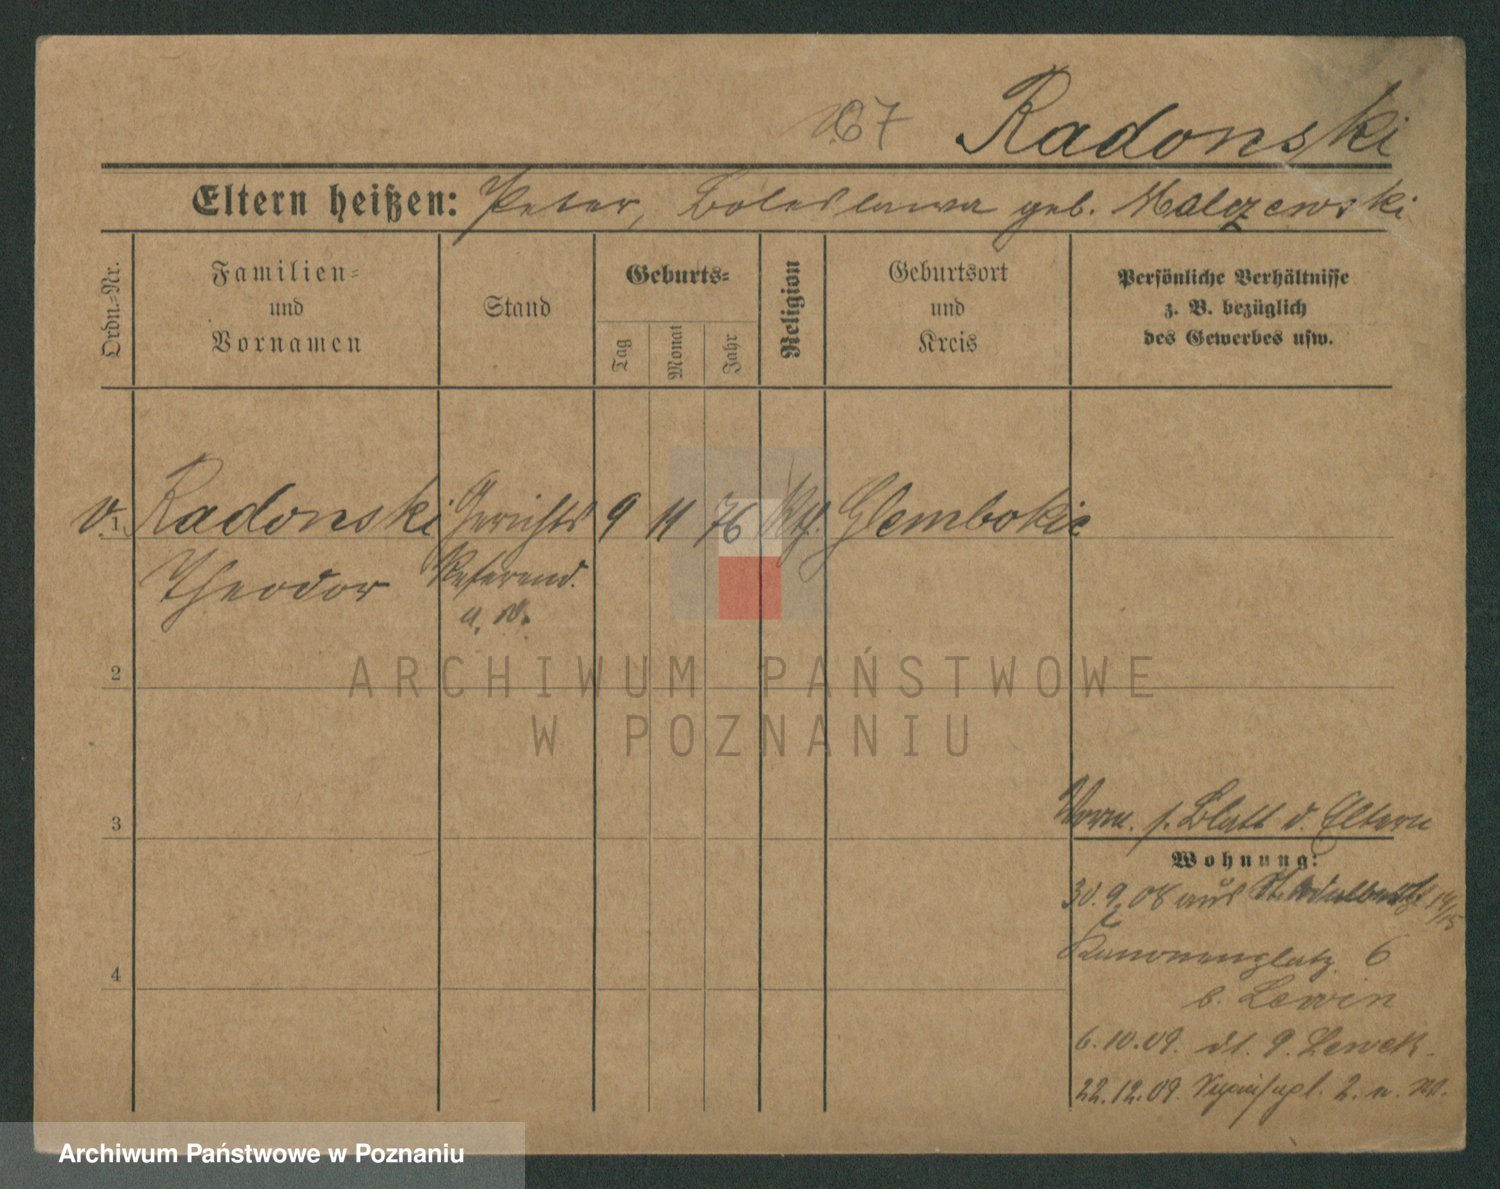 67 Radonski
Eltern heißen: Peter, Boleslawa geb. Malczewski
Ordn.-Nr.
Familien- und Vornamen
Stand
Geburts-
Tag
Monat
Jahr
Religion
Geburtsort und Kreis
Persönliche Verhältnisse z. B. bezüglich des Gewerbes usw.
v. 1 Radonski Gerichts 9 11 76 Kth. Glembokie
Theodor Referend.
a. D.
2
3
4
Vorm. s. Blatt d. Eltern
Wohnung:
30.9.08 aus St. Adalbert 14/15
Kanonenplatz 6
b. Lewin
6.10.09. dt. 9. Lewek
22.12.09. 2. a. W.
ARCHIWUM PAŃSTWOWE
W POZNANIU
Archiwum Państwowe w Poznaniu